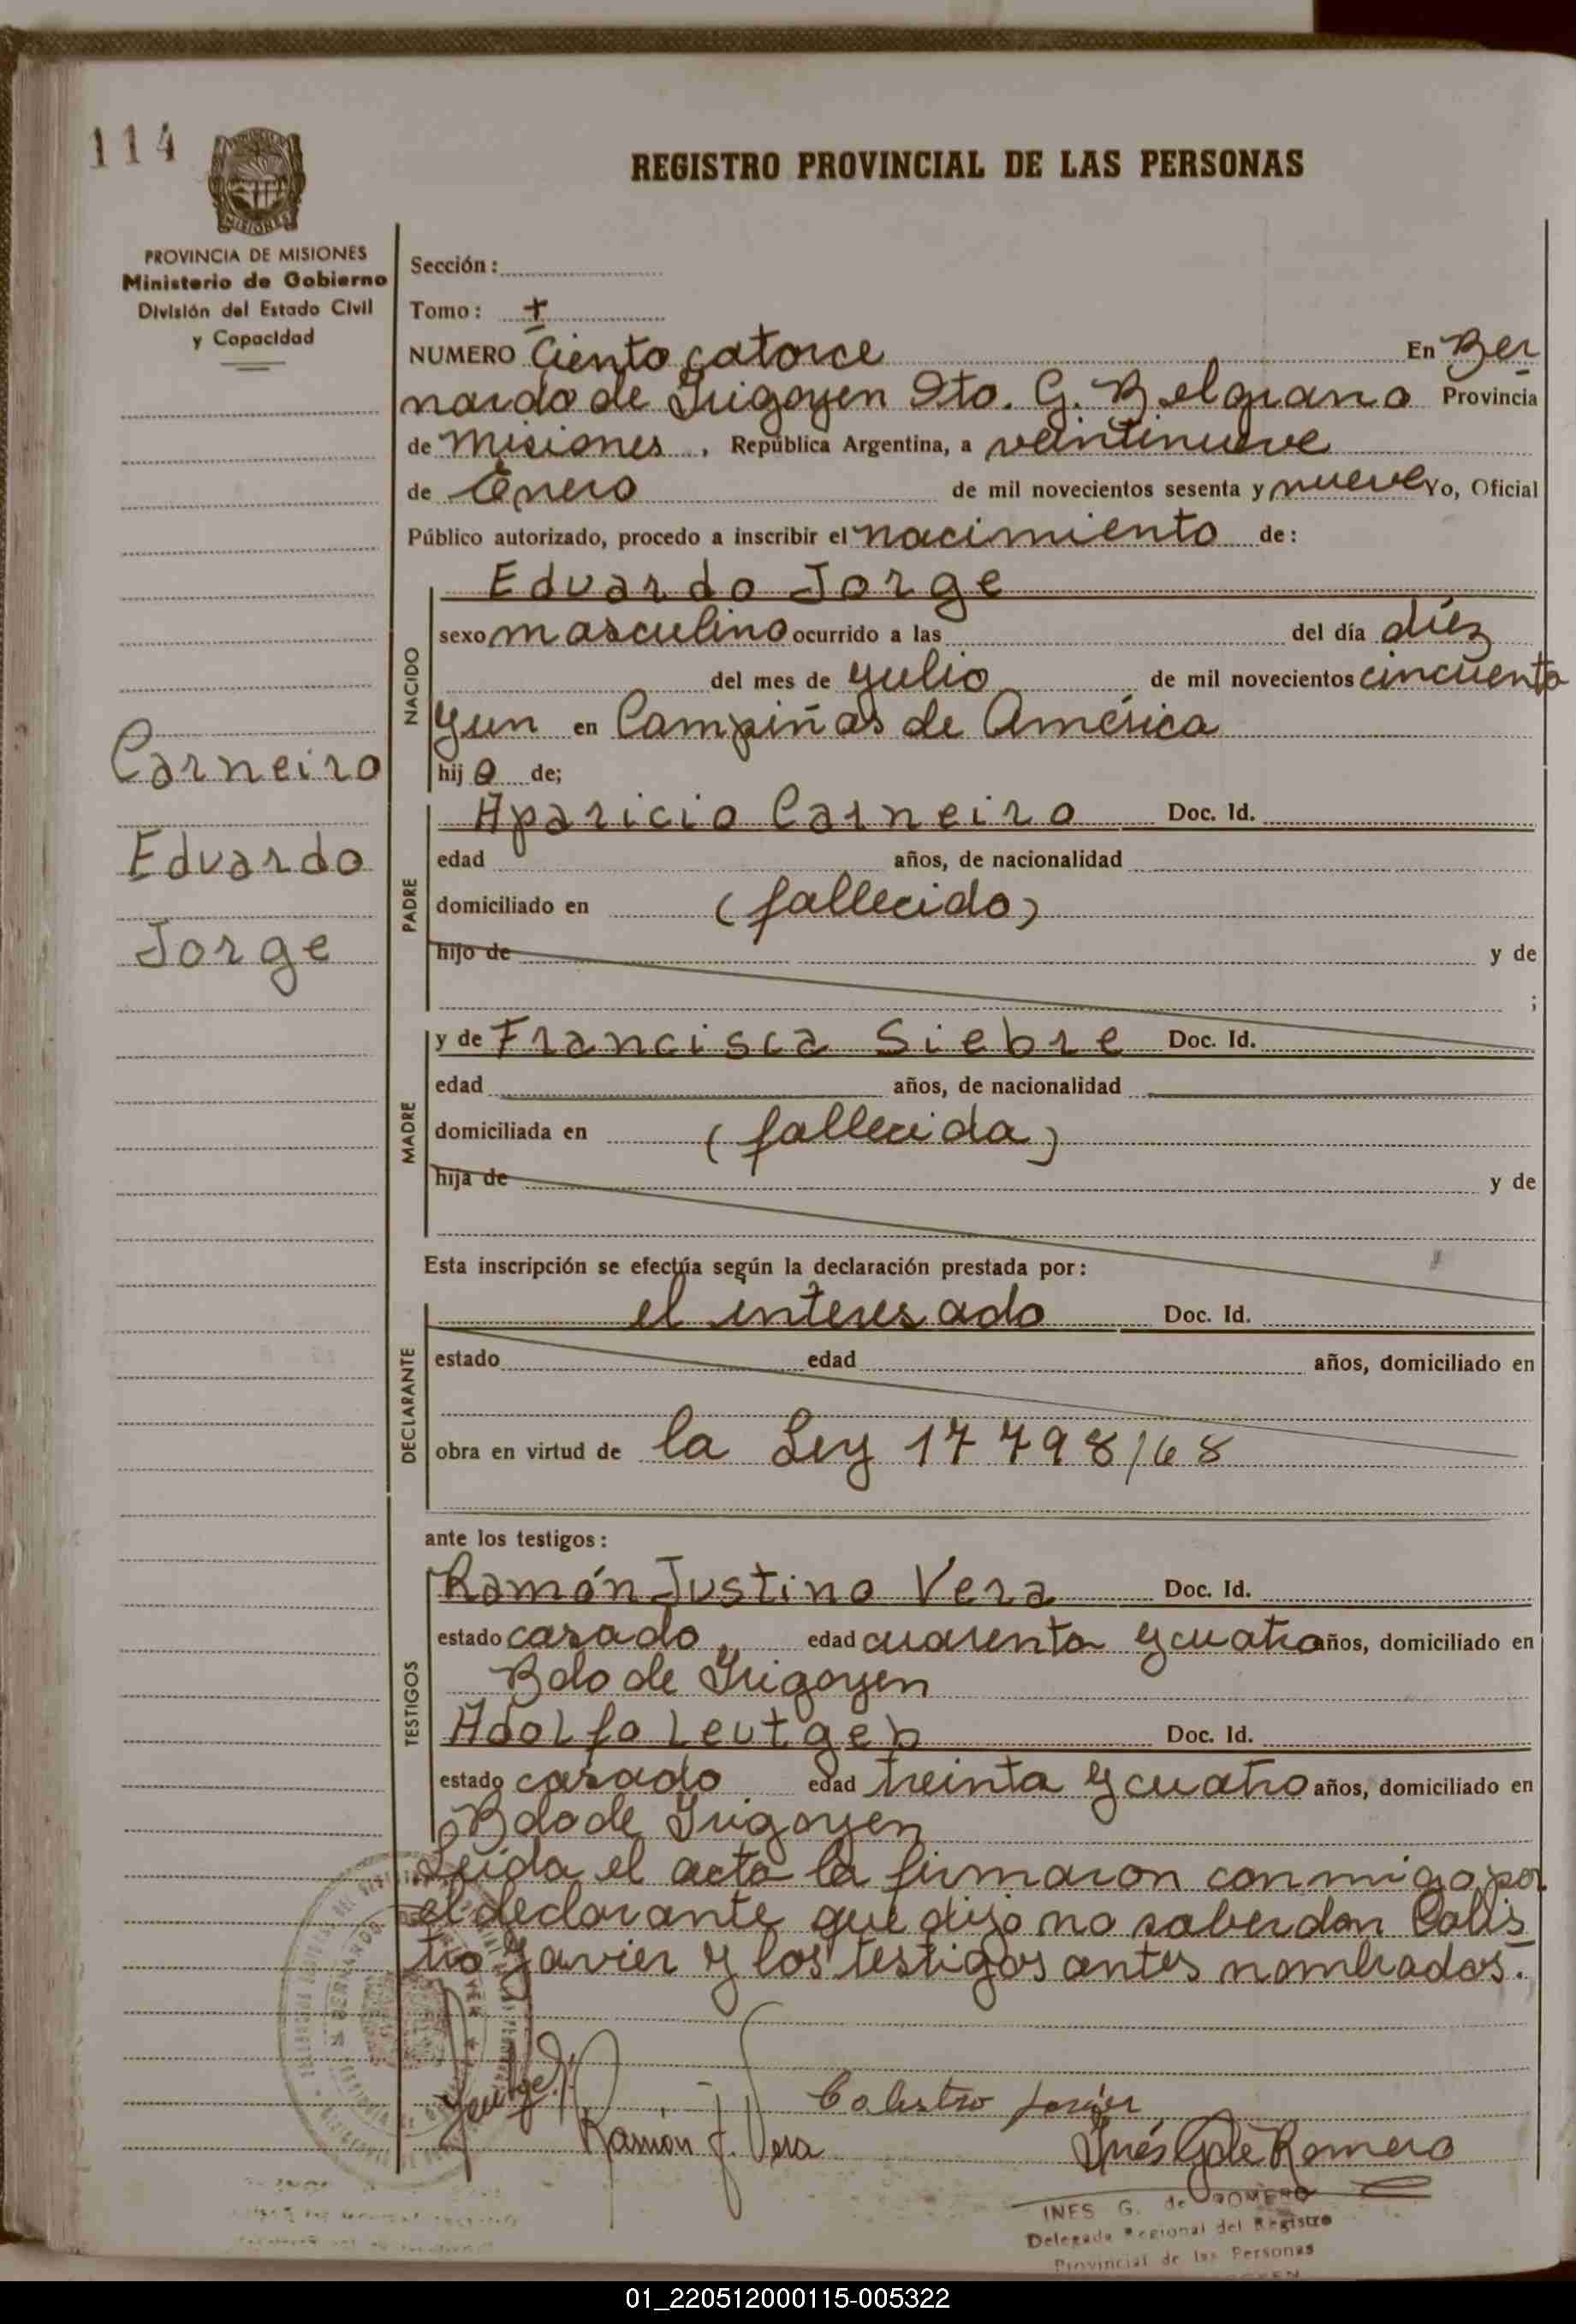 114
REGISTRO PROVINCIAL DE LAS PERSONAS
PROVINCIA DE MISIONES
Ministerio de Gobierno
División del Estado Civil
y Capacidad
Sección:
Tomo:
NUMERO Ciento catorce En Ber
nardo de Irigoyen Dto. G. Belgrano Provincia
de Misiones, República Argentina, a veintinueve
de Enero de mil novecientos sesenta y nueve Yo, Oficial
Público autorizado, procedo a inscribir el nacimiento de:
Eduardo Jorge
NACIDO
sexo masculino ocurrido a las del día diez
del mes de Julio de mil novecientos cincuenta
y un en Campiñas de América
hijo de;
Carneiro
Eduardo
Jorge
PADRE
Aparicio Carneiro Doc. Id.
edad años, de nacionalidad
domiciliado en (fallecido)
hijo de y de
;
MADRE
y de Francisca Siebre Doc. Id.
edad años, de nacionalidad
domiciliada en (fallecida)
hija de y de
Esta inscripción se efectúa según la declaración prestada por:
DECLARANTE
el interesado Doc. Id.
estado edad años, domiciliado en
obra en virtud de la Ley 17798/68
ante los testigos:
TESTIGOS
Ramón Justino Vera Doc. Id.
estado casado edad cuarenta y cuatro años, domiciliado en
Bdo de Irigoyen
Adolfo Leutgeb Doc. Id.
estado casado edad treinta y cuatro años, domiciliado en
Bdo de Irigoyen
Leida el acta la firmaron conmigo por
el declarante que dijo no saber don Calis
tro Javier y los testigos antes nombrados.
Ramón J. Vera
Calistro Javier
Inés G de Romero
INES G. de ROMERO
Delegada Regional del Registro
Provincial de las Personas
01_220512000115-005322